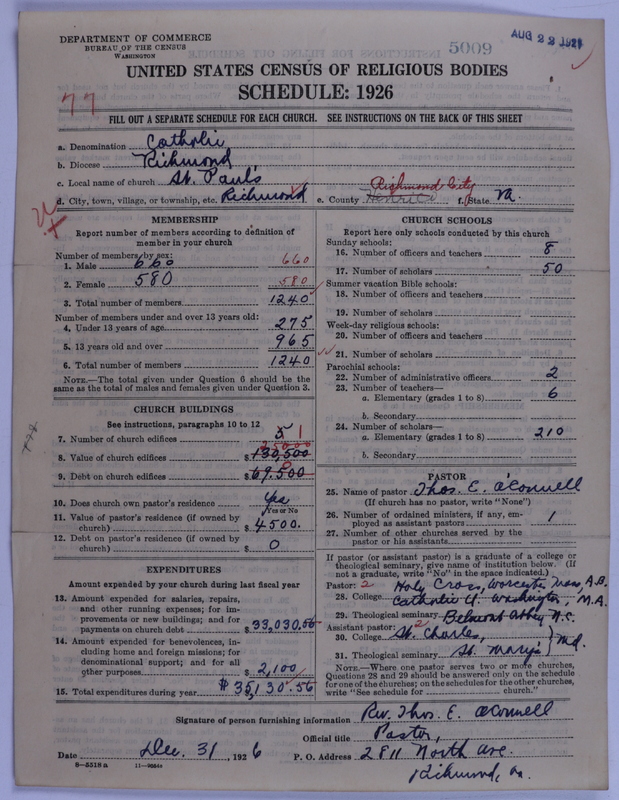 DEPARTMENT OF COMMERCE
BUREAU OF THE CENSUS
WASHINGTON
5009
AUG 22 1927
UNITED STATES CENSUS OF RELIGIOUS BODIES
SCHEDULE: 1926
77
FILL OUT A SEPARATE SCHEDULE FOR EACH CHURCH. SEE INSTRUCTIONS ON THE BACK OF THIS SHEET
a. Denomination Catholic
b. Diocese Richmond
c. Local name of church St. Paul's
d. City, town, village, or township, etc. Richmond e. County Henrico Richmond City f. State Va.
MEMBERSHIP
Report number of members according to definition of
member in your church
Number of members by sex:
1. Male 660 660
2. Female 580 580
3. Total number of members 1240
Number of members under and over 13 years old:
4. Under 13 years of age 275
5. 13 years old and over 965
6. Total number of members 1240
NOTE.—The total given under Question 6 should be the
same as the total of males and females given under Question 3.
CHURCH BUILDINGS
See instructions, paragraphs 10 to 12
7. Number of church edifices 5 1
8. Value of church edifices $ 130,500 25000
9. Debt on church edifices $ 69,500 0
10. Does church own pastor's residence Yes
Yes or No
11. Value of pastor's residence (if owned by
church) $ 4500.
12. Debt on pastor's residence (if owned by
church) $ 0
EXPENDITURES
Amount expended by your church during last fiscal year
13. Amount expended for salaries, repairs,
and other running expenses; for im-
provements or new buildings; and for
payments on church debt $ 33,030.56
14. Amount expended for benevolences, in-
cluding home and foreign missions; for
denominational support; and for all
other purposes $ 2,100
15. Total expenditures during year $ 35,130.56
CHURCH SCHOOLS
Report here only schools conducted by this church
Sunday schools:
16. Number of officers and teachers 8
17. Number of scholars 50
Summer vacation Bible schools:
18. Number of officers and teachers
19. Number of scholars
Week-day religious schools:
20. Number of officers and teachers
21. Number of scholars
Parochial schools:
22. Number of administrative officers 2
23. Number of teachers—
a. Elementary (grades 1 to 8) 6
b. Secondary
24. Number of scholars—
a. Elementary (grades 1 to 8) 210
b. Secondary
PASTOR
25. Name of pastor Thos. E. O'Connell
(If church has no pastor, write "None")
26. Number of ordained ministers, if any, em-
ployed as assistant pastors 1
27. Number of other churches served by the
pastor or his assistants
If pastor (or assistant pastor) is a graduate of a college or
theological seminary, give name of institution below. (If
not a graduate, write "No" in the space indicated.)
Pastor: 2 Holy Cross, Worcester, Mass, A.B.
28. College Catholic U. Washington, M.A.
29. Theological seminary Belmont Abbey N.C.
Assistant pastor: 2
30. College St. Charles, } Md.
31. Theological seminary St. Mary's
NOTE.—Where one pastor serves two or more churches,
Questions 28 and 29 should be answered only on the schedule
for one of the churches; on the schedules for the other churches,
write "See schedule for church."
Signature of person furnishing information Rev. Thos. E. O'Connell
Official title Pastor,
Date Dec. 31, 1926 P. O. Address 2811 North Ave.
Richmond, Va.
8—5518a 11—9664a